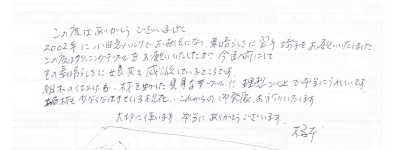 この度はありがとうございました。
2002年に小田急ハルクでお世話になり、素晴らしさに翌年 椅子をお願いいたしました
この度はダイニングテーブルをお願いいたしましたが 今目前にして
その素晴らしさに 感謝しているところです。
組木の仕上げも、材を生かした見事なテーブル!! 理想以上で本当にうれしいです。
材も少なくなってきている現在、これからの御発展お祈りいたします
大切に使います 本当にありがとうございます。